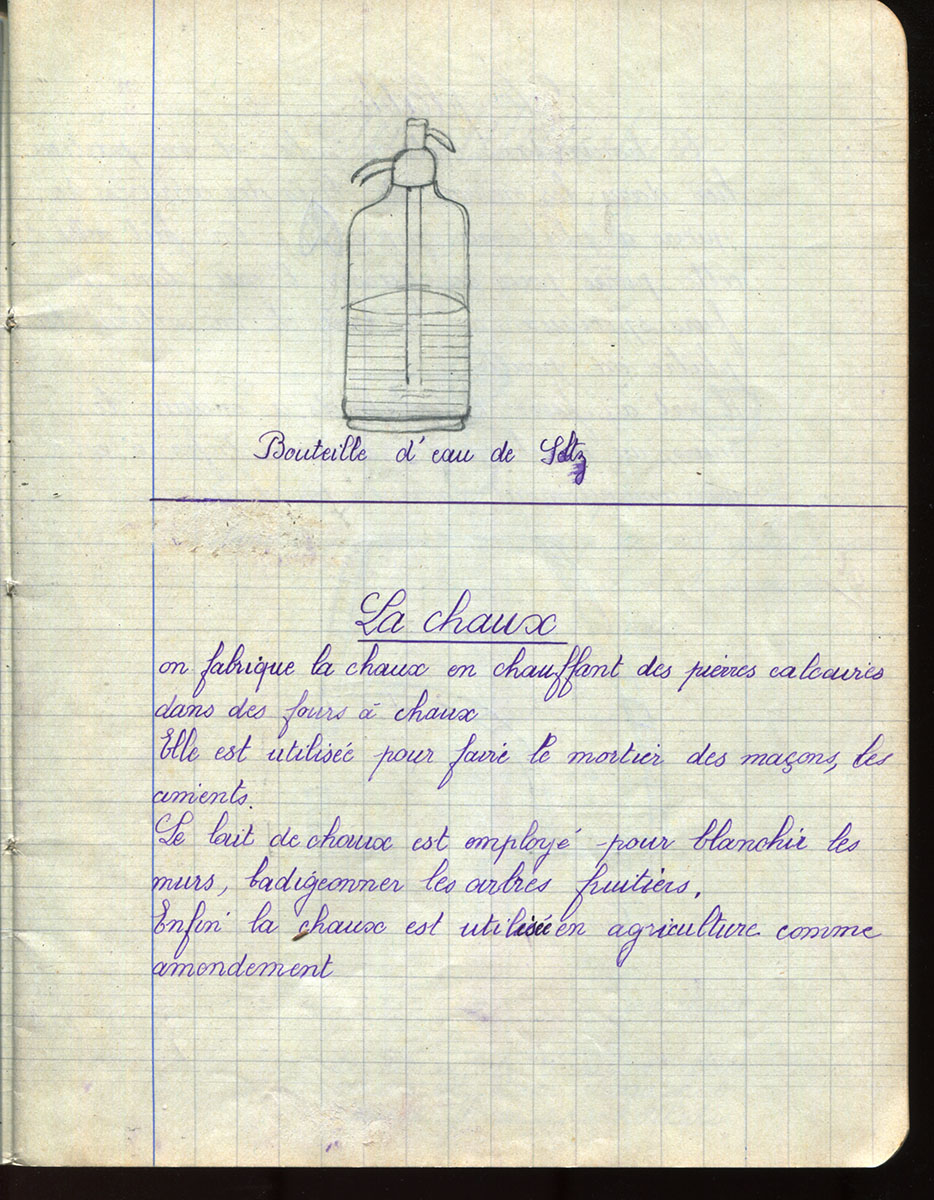 Bouteille d'eau de Seltz
La chaux
on fabrique la chaux en chauffant des pierres calcaires
dans des fours à chaux
Elle est utilisée pour faire le mortier des maçons, les
ciments.
Le lait de chaux est employé pour blanchir les
murs, badigeonner les arbres fruitiers.
Enfin la chaux est utilisée en agriculture comme
amendement